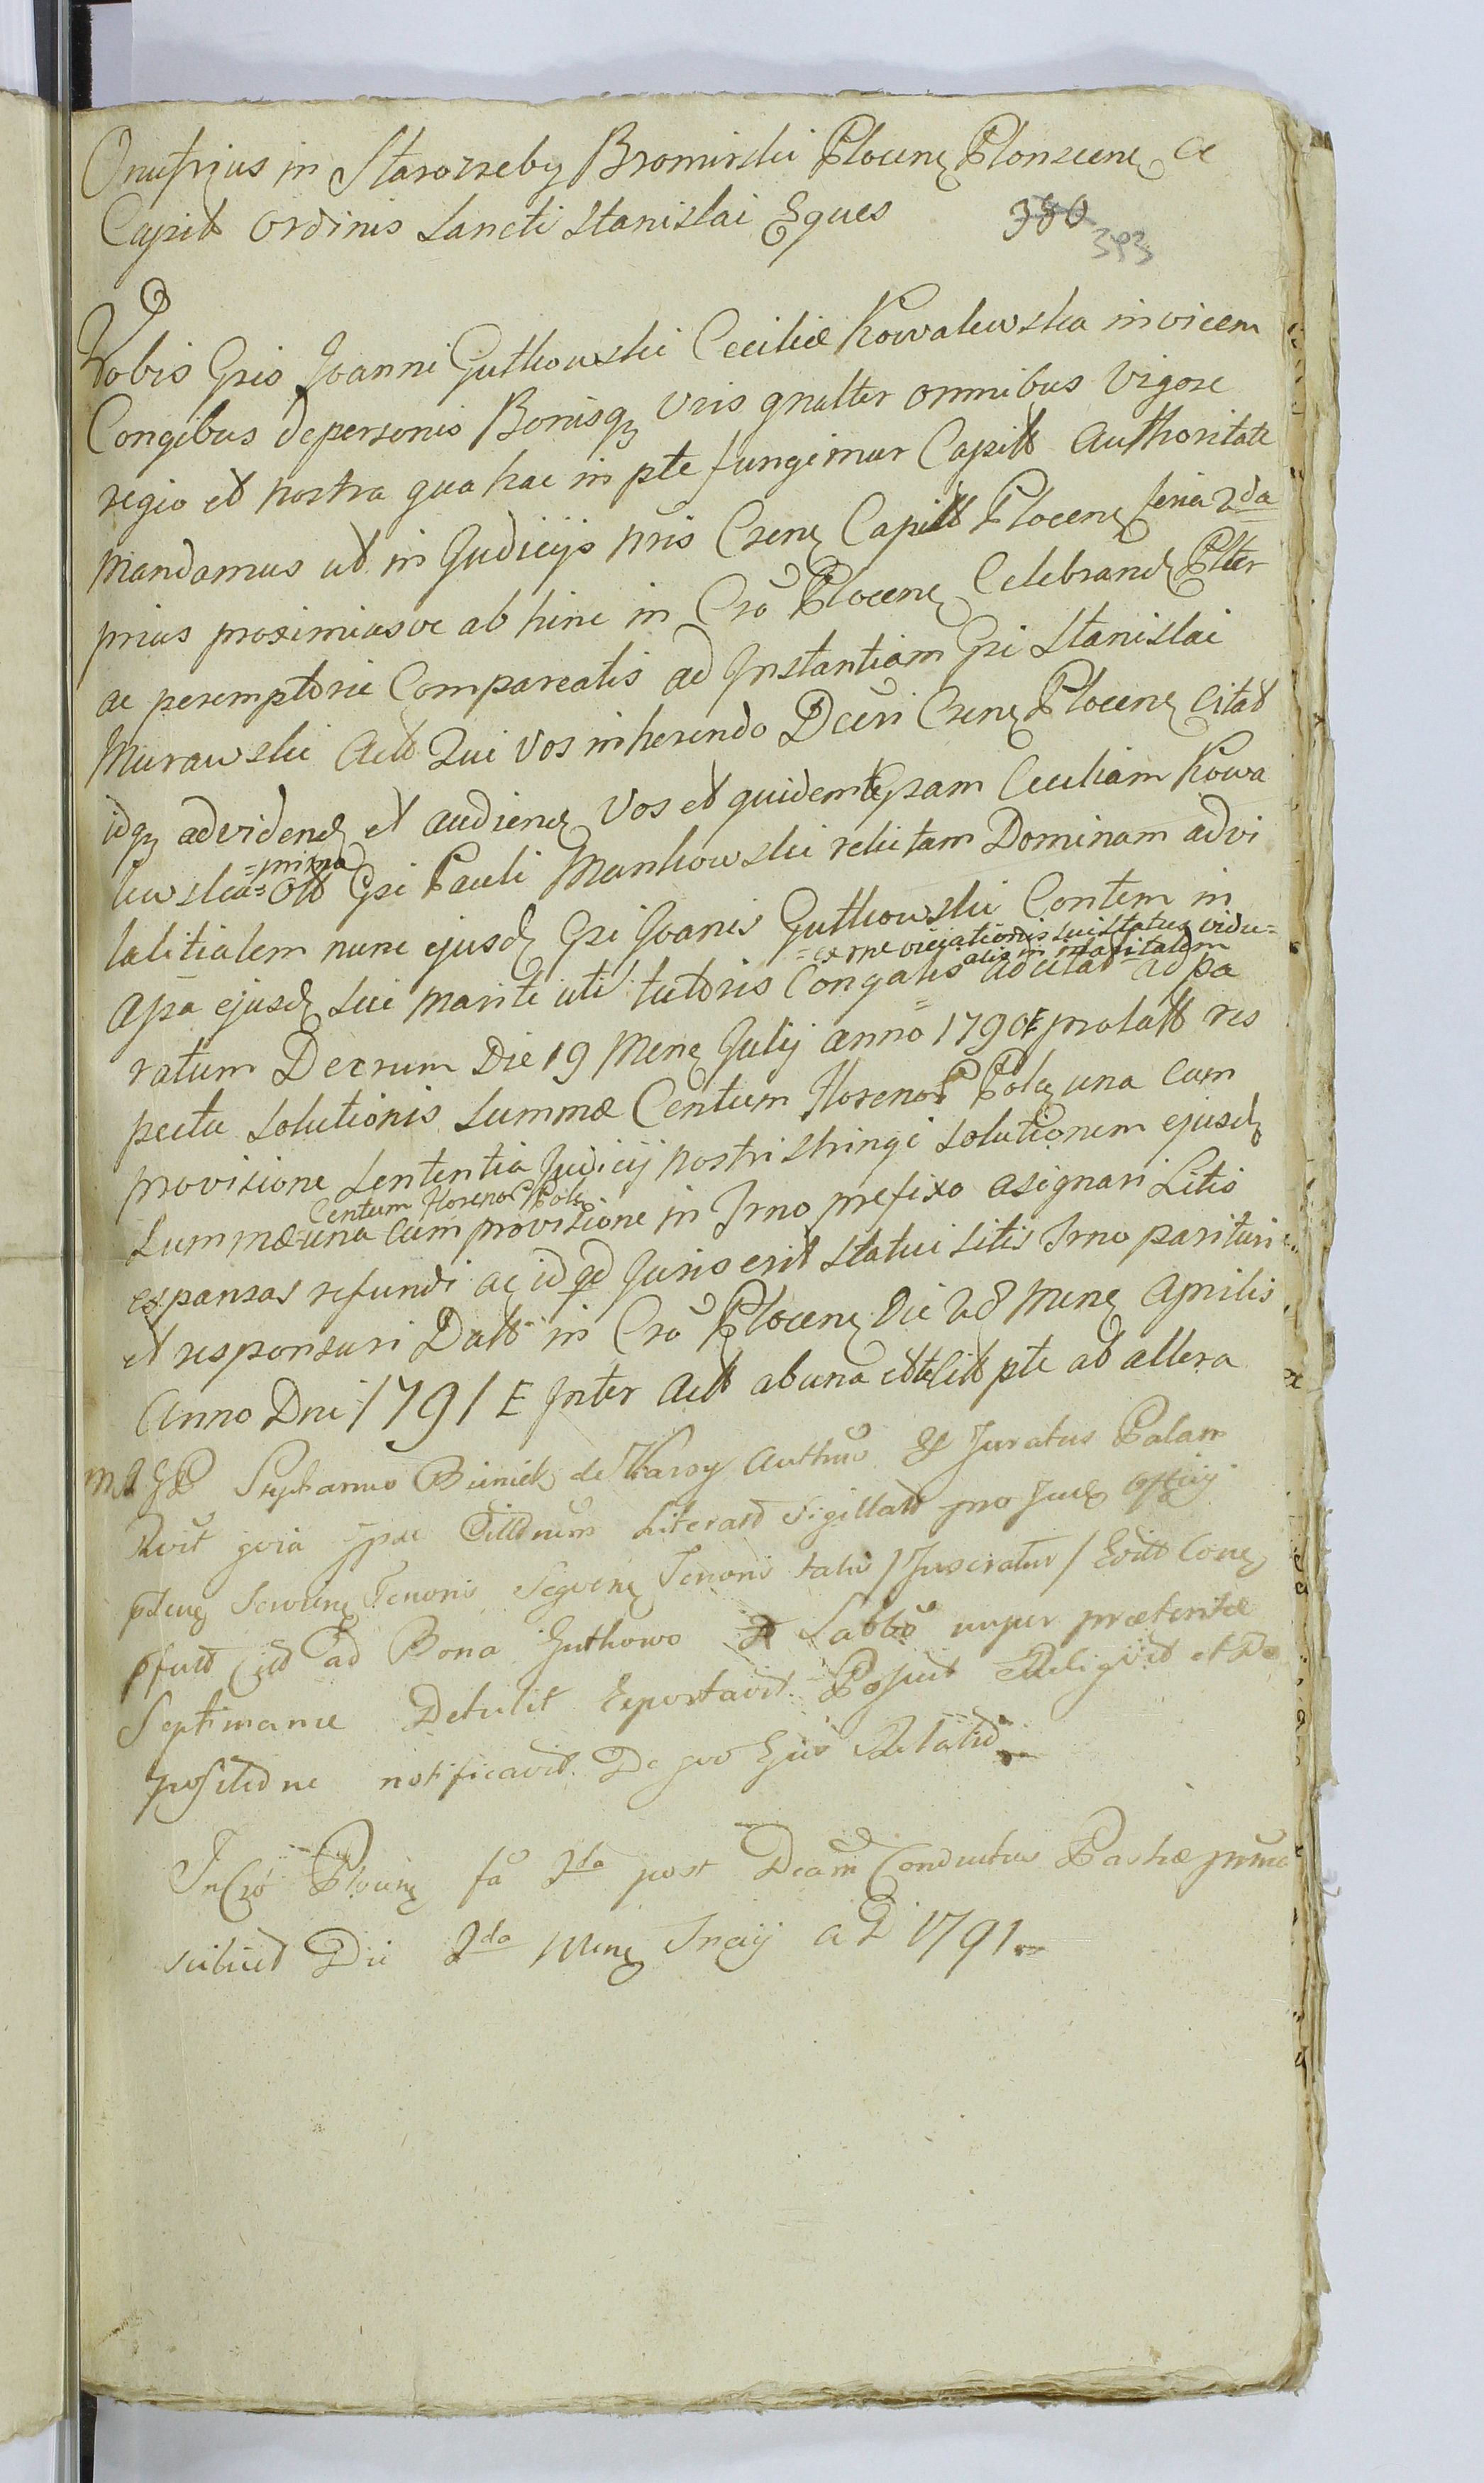 Onufrius in Starozreby Bromirski Plocen Plonscen ac
Capit Ordinis Sancti Stanislai Eques
380
393
Vobis Gsis Joanni Gutkowski Ceciliæ Kowalewska invicem
Congibus de personis Bonisq Vris gnalter omnibus Vigore
regio et nostra qua hac in pte fungimur Capit Authoritate
Mandamus ut in Judicijs nris Csen Capit Plocen feria 2da
prius proximiusve ab hinc in Cso Plocen Celebrand Plter
ac peremptorie Compareatis ad Instantiam Gsi Stanislai
Murawski Act Qui Vos inherendo Dcun Csen Plocen Citat
idq ad vidend et audiend Vos et quidem te Gsam Ceciliam Kowa
lewska =primo= Olt Gsi Pauli Mankowski relictam Dominam advi
talitialem nunc ejusd Gsi Joanis Gutkowski Contem in
=ex rne viciationis sui status vidu=
alis in maritalem
Apa ejusd sui mariti uti tutoris Congalis = adcitat ad pa
ratum Decrum Die 19 Men Julij anno 1790 E prolatt res
pectu solutionis summæ Centum florenor Pol una cum
provisione Sententia Judicij nostri stringi solutionem ejusd
Centum florenor Pol
Summæ = una cum provisione in Trno prefixo asignari Litis
expansas refundi ac id qd Juris erit statui sitis Trno parituri
et responsuri Datt in Cso Plocen Die 28 Men Aprilis
Anno Dni 1791 E Inter Act ab una et Citt pte ab altera
Stephanus Bieniek de Karsy Authus & Juratus Palam
Rvit quia ipse Literas Sigillatt pro Jud Officij
Tenoris Seqven Tenoris talis / Inseratur / Editt Conc
Citt ad Bona Gutkowo Sabbo nuper præteritæ
Septimanæ Detulit Exportavit Posuit Reliqvit et De
positione notificavit De quo Ejus Relatio
In Cso Plocen fa 2da post Dcam Conductus Paschæ prima
scilicet Die 2da Men Maij A D 1791